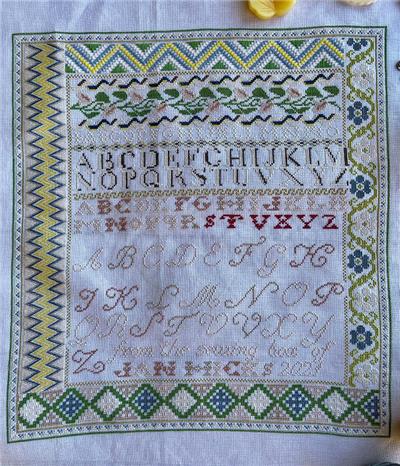 ABCDEFGHIJKLM
NOPQRSTUVXYZ
ABC FGHIJKL
MNOPQRSTVXYZ
ABCDEFGH
IKLMNOP
QRSTUVXY
from the sewing box of
Z JAN HICKS 2021